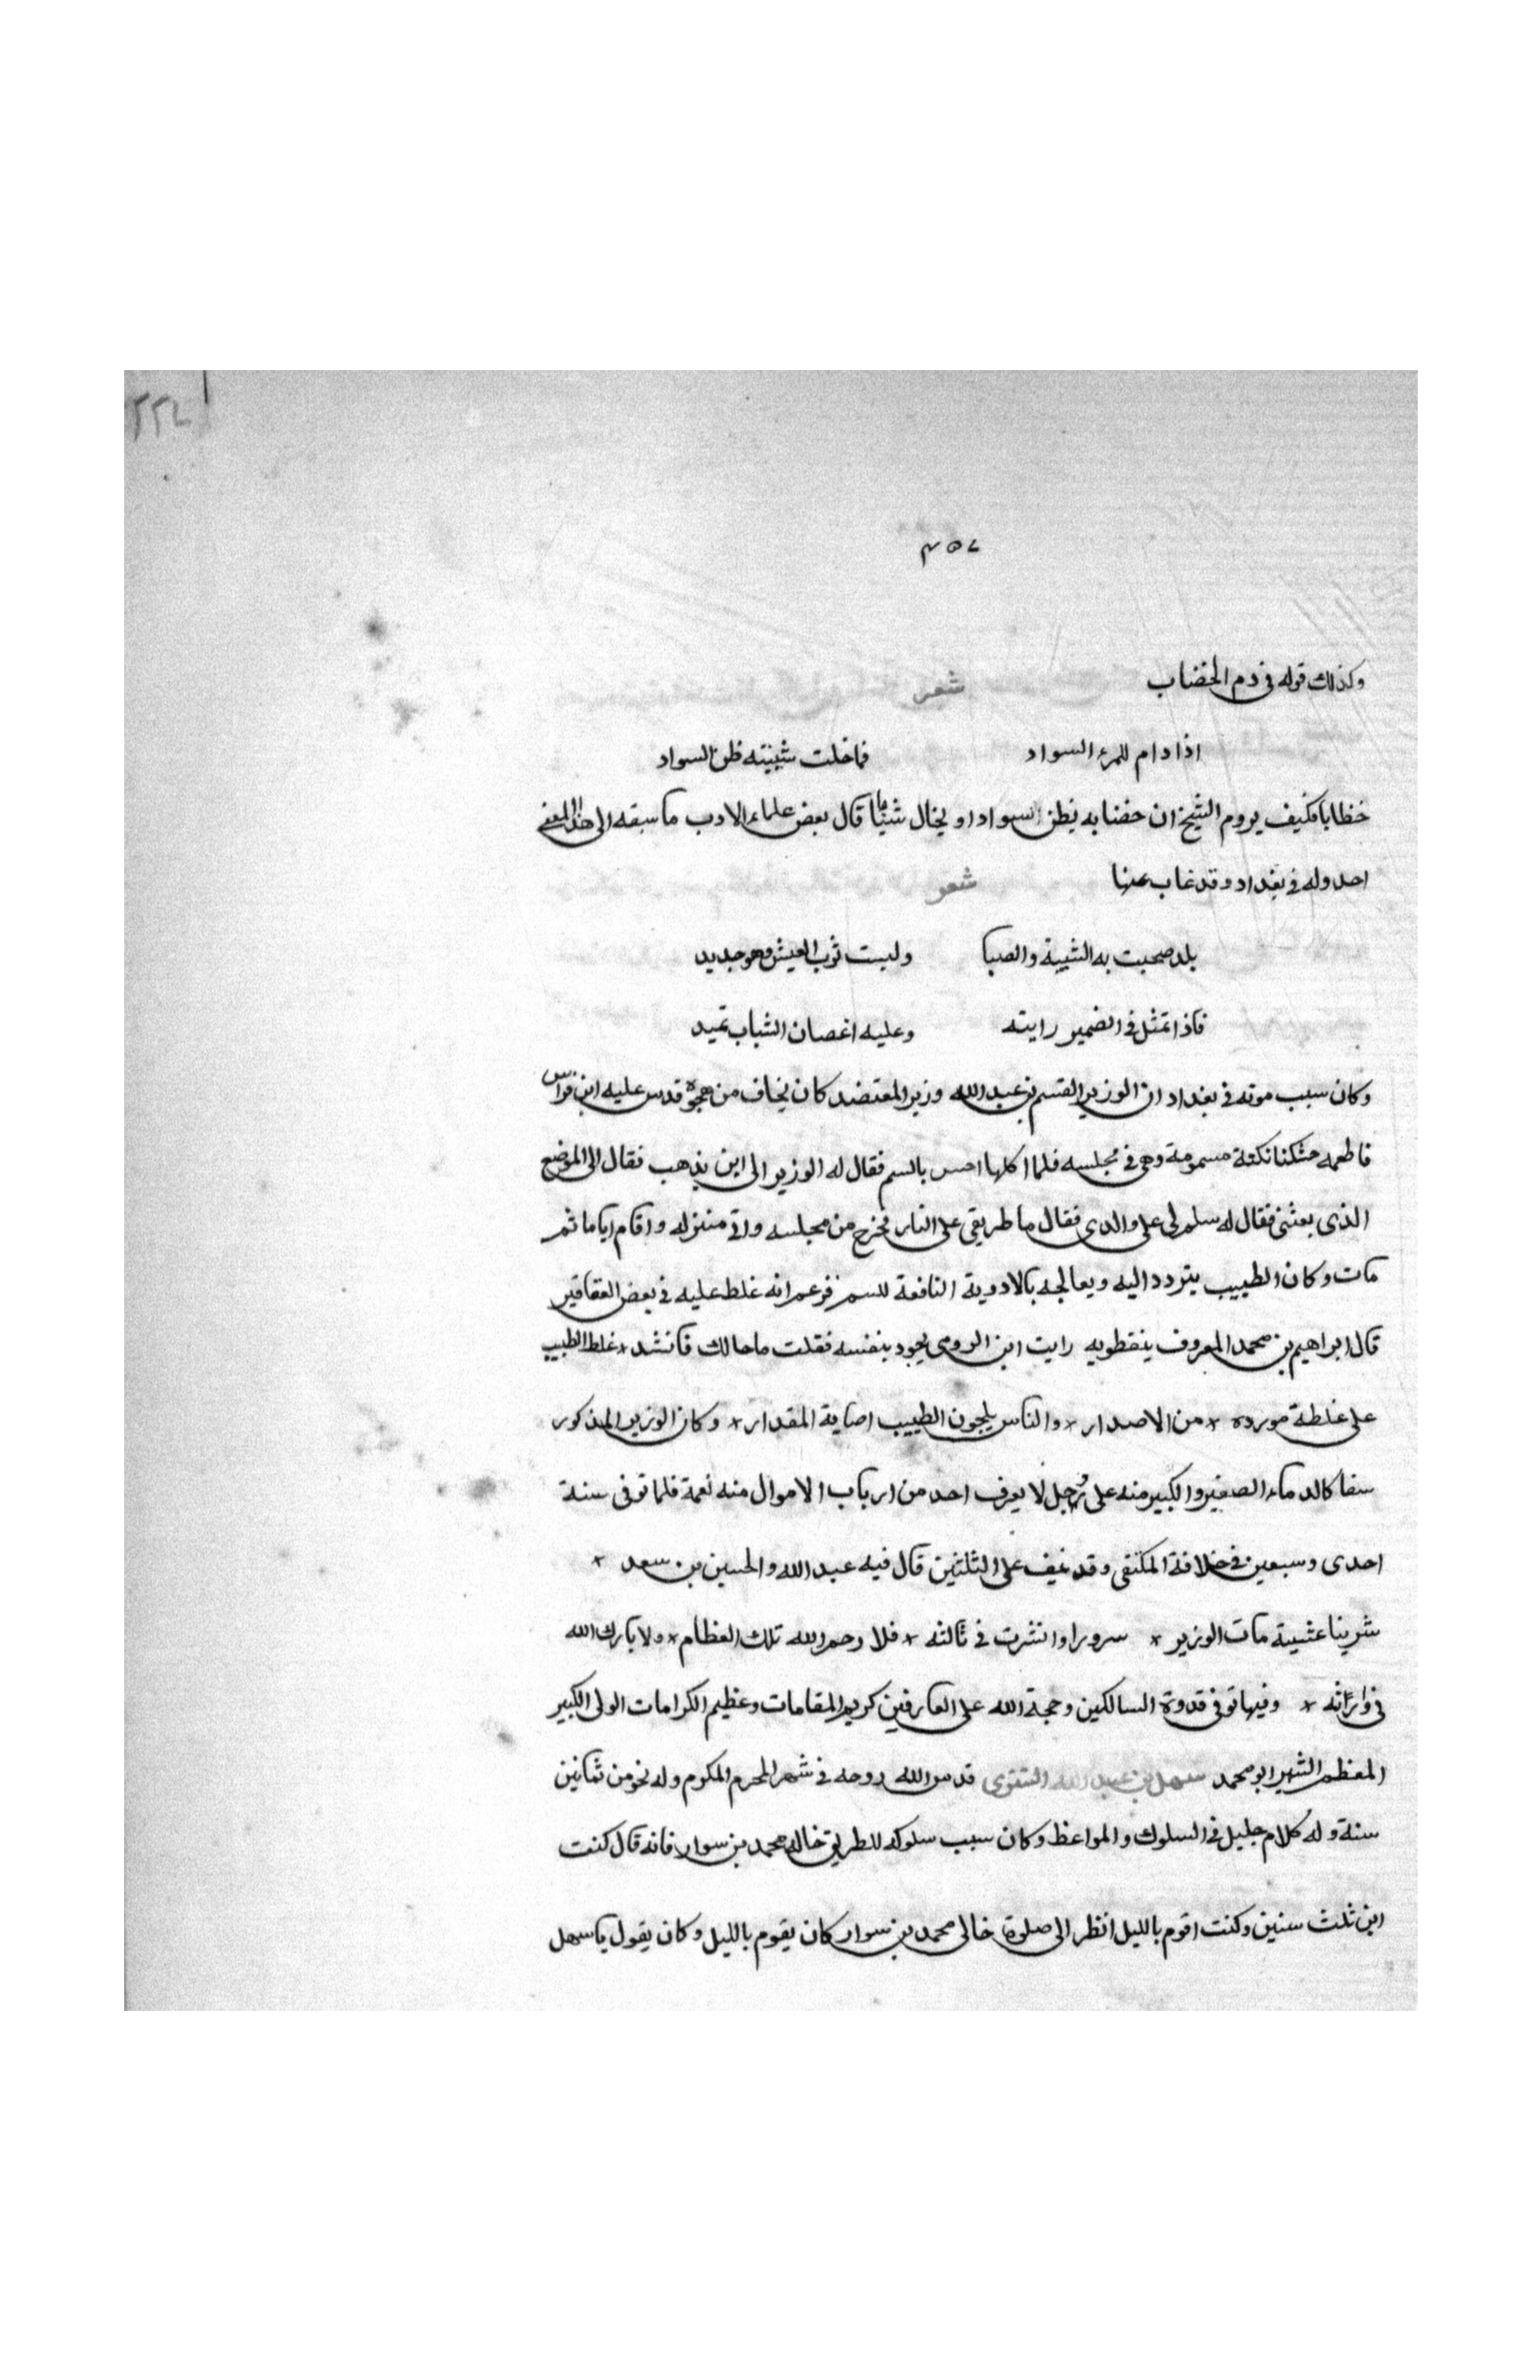 ٢٢٤
٤٥٧
وكذلك قوله فى ذم الخضاب شعر
اذا دام للمرء السواد فاخلت شيبته ظن السواد
خظابا فكيف يروم الشيخ ان خضابه يظن اسوادا او يخال شبابا قال بعض علماء الادب ما سبقه الى هذا المعنى
احد وله فى بغداد وقد غاب عنها شعر
بلد صحبت به الشيبة والصبا ولبست ثوب العيش وهو جديد
فاذا تمثل فى الضمير رايته وعليه اغصان الشباب تميد
وكان سبب موته فى بغداد ان الوزير القسم بن عبد الله وزير المعتضد كان يخاف من هجوه قدس عليه ابن فراس
فاطعمه خشكنا نكتة مسمومة وهى فى مجلسه فلما اكلها احس بالسم فقال له الوزير الى اين يذهب فقال الى الموضع
الذى بعثنى فقال له سلم لى على والدى فقال ما طريقى على النار فخرج من مجلسه واتى منزله واقام اياما ثم
مات وكان الطبيب يتردد اليه ويعالجه بالادوية النافعة للسم فزعم انه غلط عليه فى بعض العقاقير
قال ابراهيم بن محمد المعروف بنفطويه رايت ابن الرومى يجود بنفسه فقلت ما حالك فانشد * غلط الطبيب
على غلطة مورده * من الاصدار * والناس يلجون الطبيب اصابة المقدار * وكان الوزير المذكور
سفاكا لدماء الصغير والكبير منه على وجل لا يعرف احد من ارباب الاموال منه نعمة فلما توفى سنة
احدى وسبعين فى خلافة المكتفى وقد نيف على الثلثين قال فيه عبد الله والحسين بن سعد *
شربنا عشية مات الوزير * سرورا وانشرت فى ثالثه * فلا رحم الله تلك العظام * ولا بارك الله
فى وارثه * وفيها توفى قدوة السالكين وحجة الله على العارفين كريم المقامات وعظيم الكرامات الولى الكبير
المعظم الشهير ابو محمد سهل بن عبد الله التسترى قدس الله روحه فى شهر المحرم المكرم وله نحو من ثمانين
سنة وله كلام جليل فى السلوك والمواعظ وكان سبب سلوكه للطريق خاله محمد بن سوار فانه قال كنت
ابن ثلث سنين وكنت اقوم بالليل انظر الى صلوة خالى محمد بن سوار كان يقوم بالليل وكان يقول يا سهل